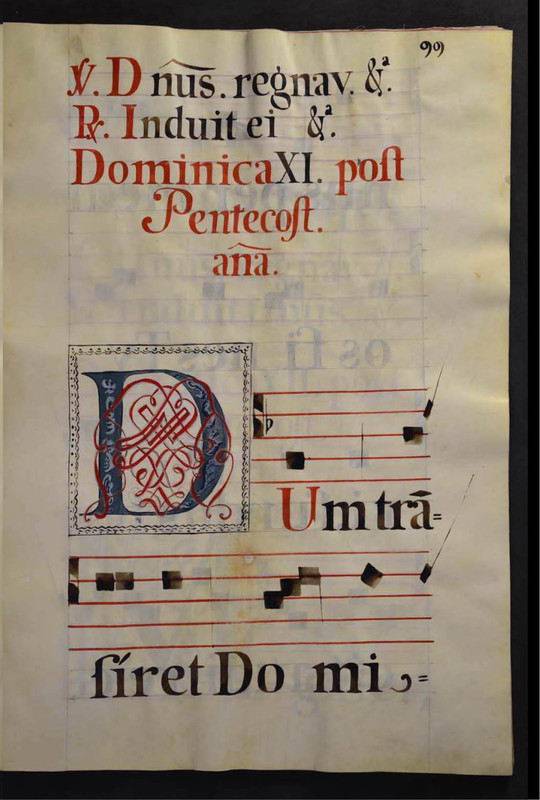 99
℣. Dnūs. regnav. &ª.
℟. Induit ei &ª.
Dominica XI. poſt
Pentecoſt.
añā.
DUm trā=
ſíret Domi=